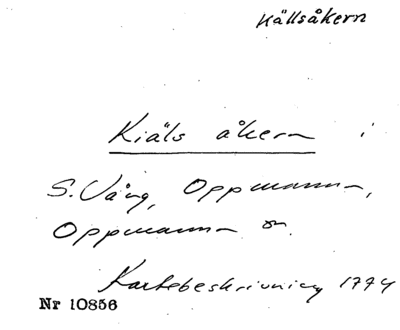 Källsåkern
Kiäls åkern i
S. Vång, Oppmanna,
Oppmanna sn.
Kartebeskrivning 1774
Nr 10856